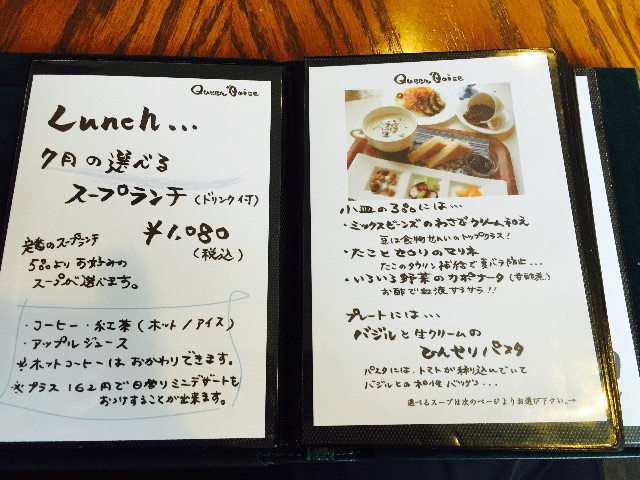 Queen Noise
Lunch...
7月の選べる
スープランチ(ドリンク付)
¥1,080
(税込)
定番のスープランチ
5品よりお好みの
スープが選べます。
・コーヒー・紅茶(ホット/アイス)
・アップルジュース
※ホットコーヒーはおかわりできます。
※プラス162円で日替りミニデザートを
おつけすることが出来ます。
Queen Noise
小皿の3品には...
・ミックスビーンズのわさびクリーム和え
豆は食物せんいのトップクラス!
・たことセロリのマリネ
たこのタウリン補給で夏バテ防止...
・いろいろ野菜のカポナータ(甘酢煮)
お酢で血液サラサラ!!
プレートには...
バジルと生クリームの
ひんやりパスタ
パスタには、トマトが練り込んでいて
バジルとの相性バツグン...
選べるスープは次のページよりお選び下さい。→